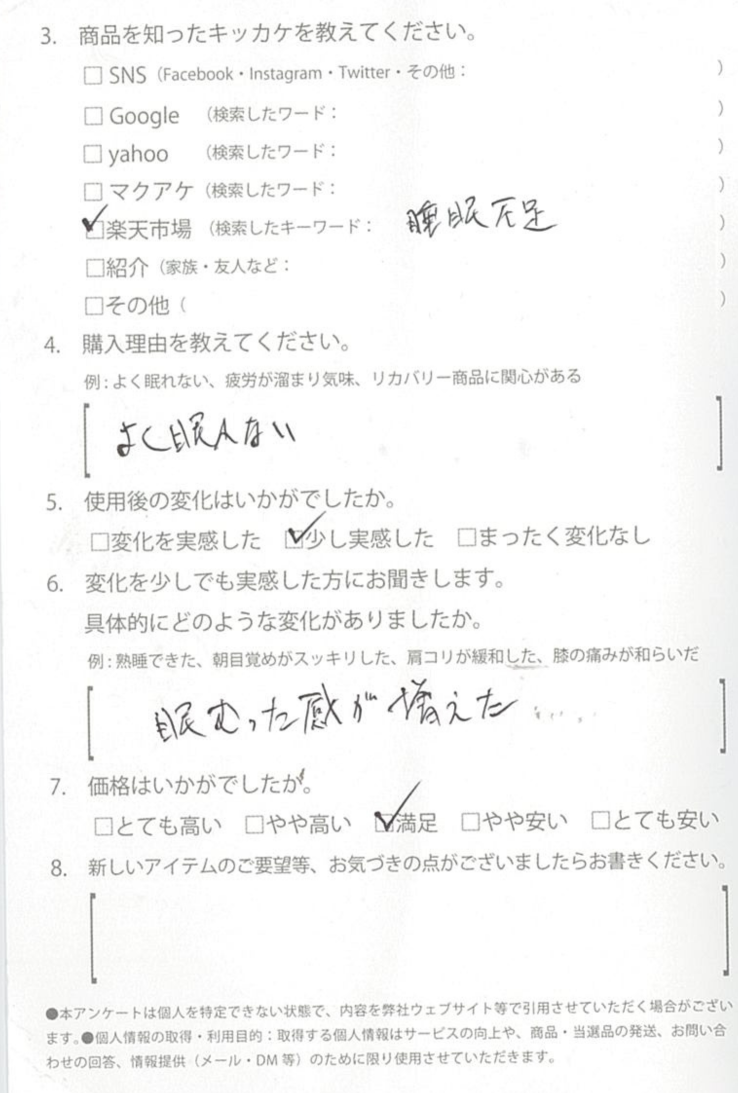 3. 商品を知ったキッカケを教えてください。
□ SNS（Facebook・Instagram・Twitter・その他： ）
□ Google （検索したワード： ）
□ yahoo （検索したワード： ）
□ マクアケ（検索したワード： ）
☑楽天市場 （検索したキーワード： 睡眠不足 ）
□紹介（家族・友人など： ）
□その他（ ）
4. 購入理由を教えてください。
例：よく眠れない、疲労が溜まり気味、リカバリー商品に関心がある
よく眠れない
5. 使用後の変化はいかがでしたか。
□変化を実感した ☑少し実感した □まったく変化なし
6. 変化を少しでも実感した方にお聞きします。
具体的にどのような変化がありましたか。
例：熟睡できた、朝目覚めがスッキリした、肩コリが緩和した、膝の痛みが和らいだ
眠むった感が増えた
7. 価格はいかがでしたか。
□とても高い □やや高い ☑満足 □やや安い □とても安い
8. 新しいアイテムのご要望等、お気づきの点がございましたらお書きください。
●本アンケートは個人を特定できない状態で、内容を弊社ウェブサイト等で引用させていただく場合がござい
ます。●個人情報の取得・利用目的：取得する個人情報はサービスの向上や、商品・当選品の発送、お問い合
わせの回答、情報提供（メール・DM 等）のために限り使用させていただきます。